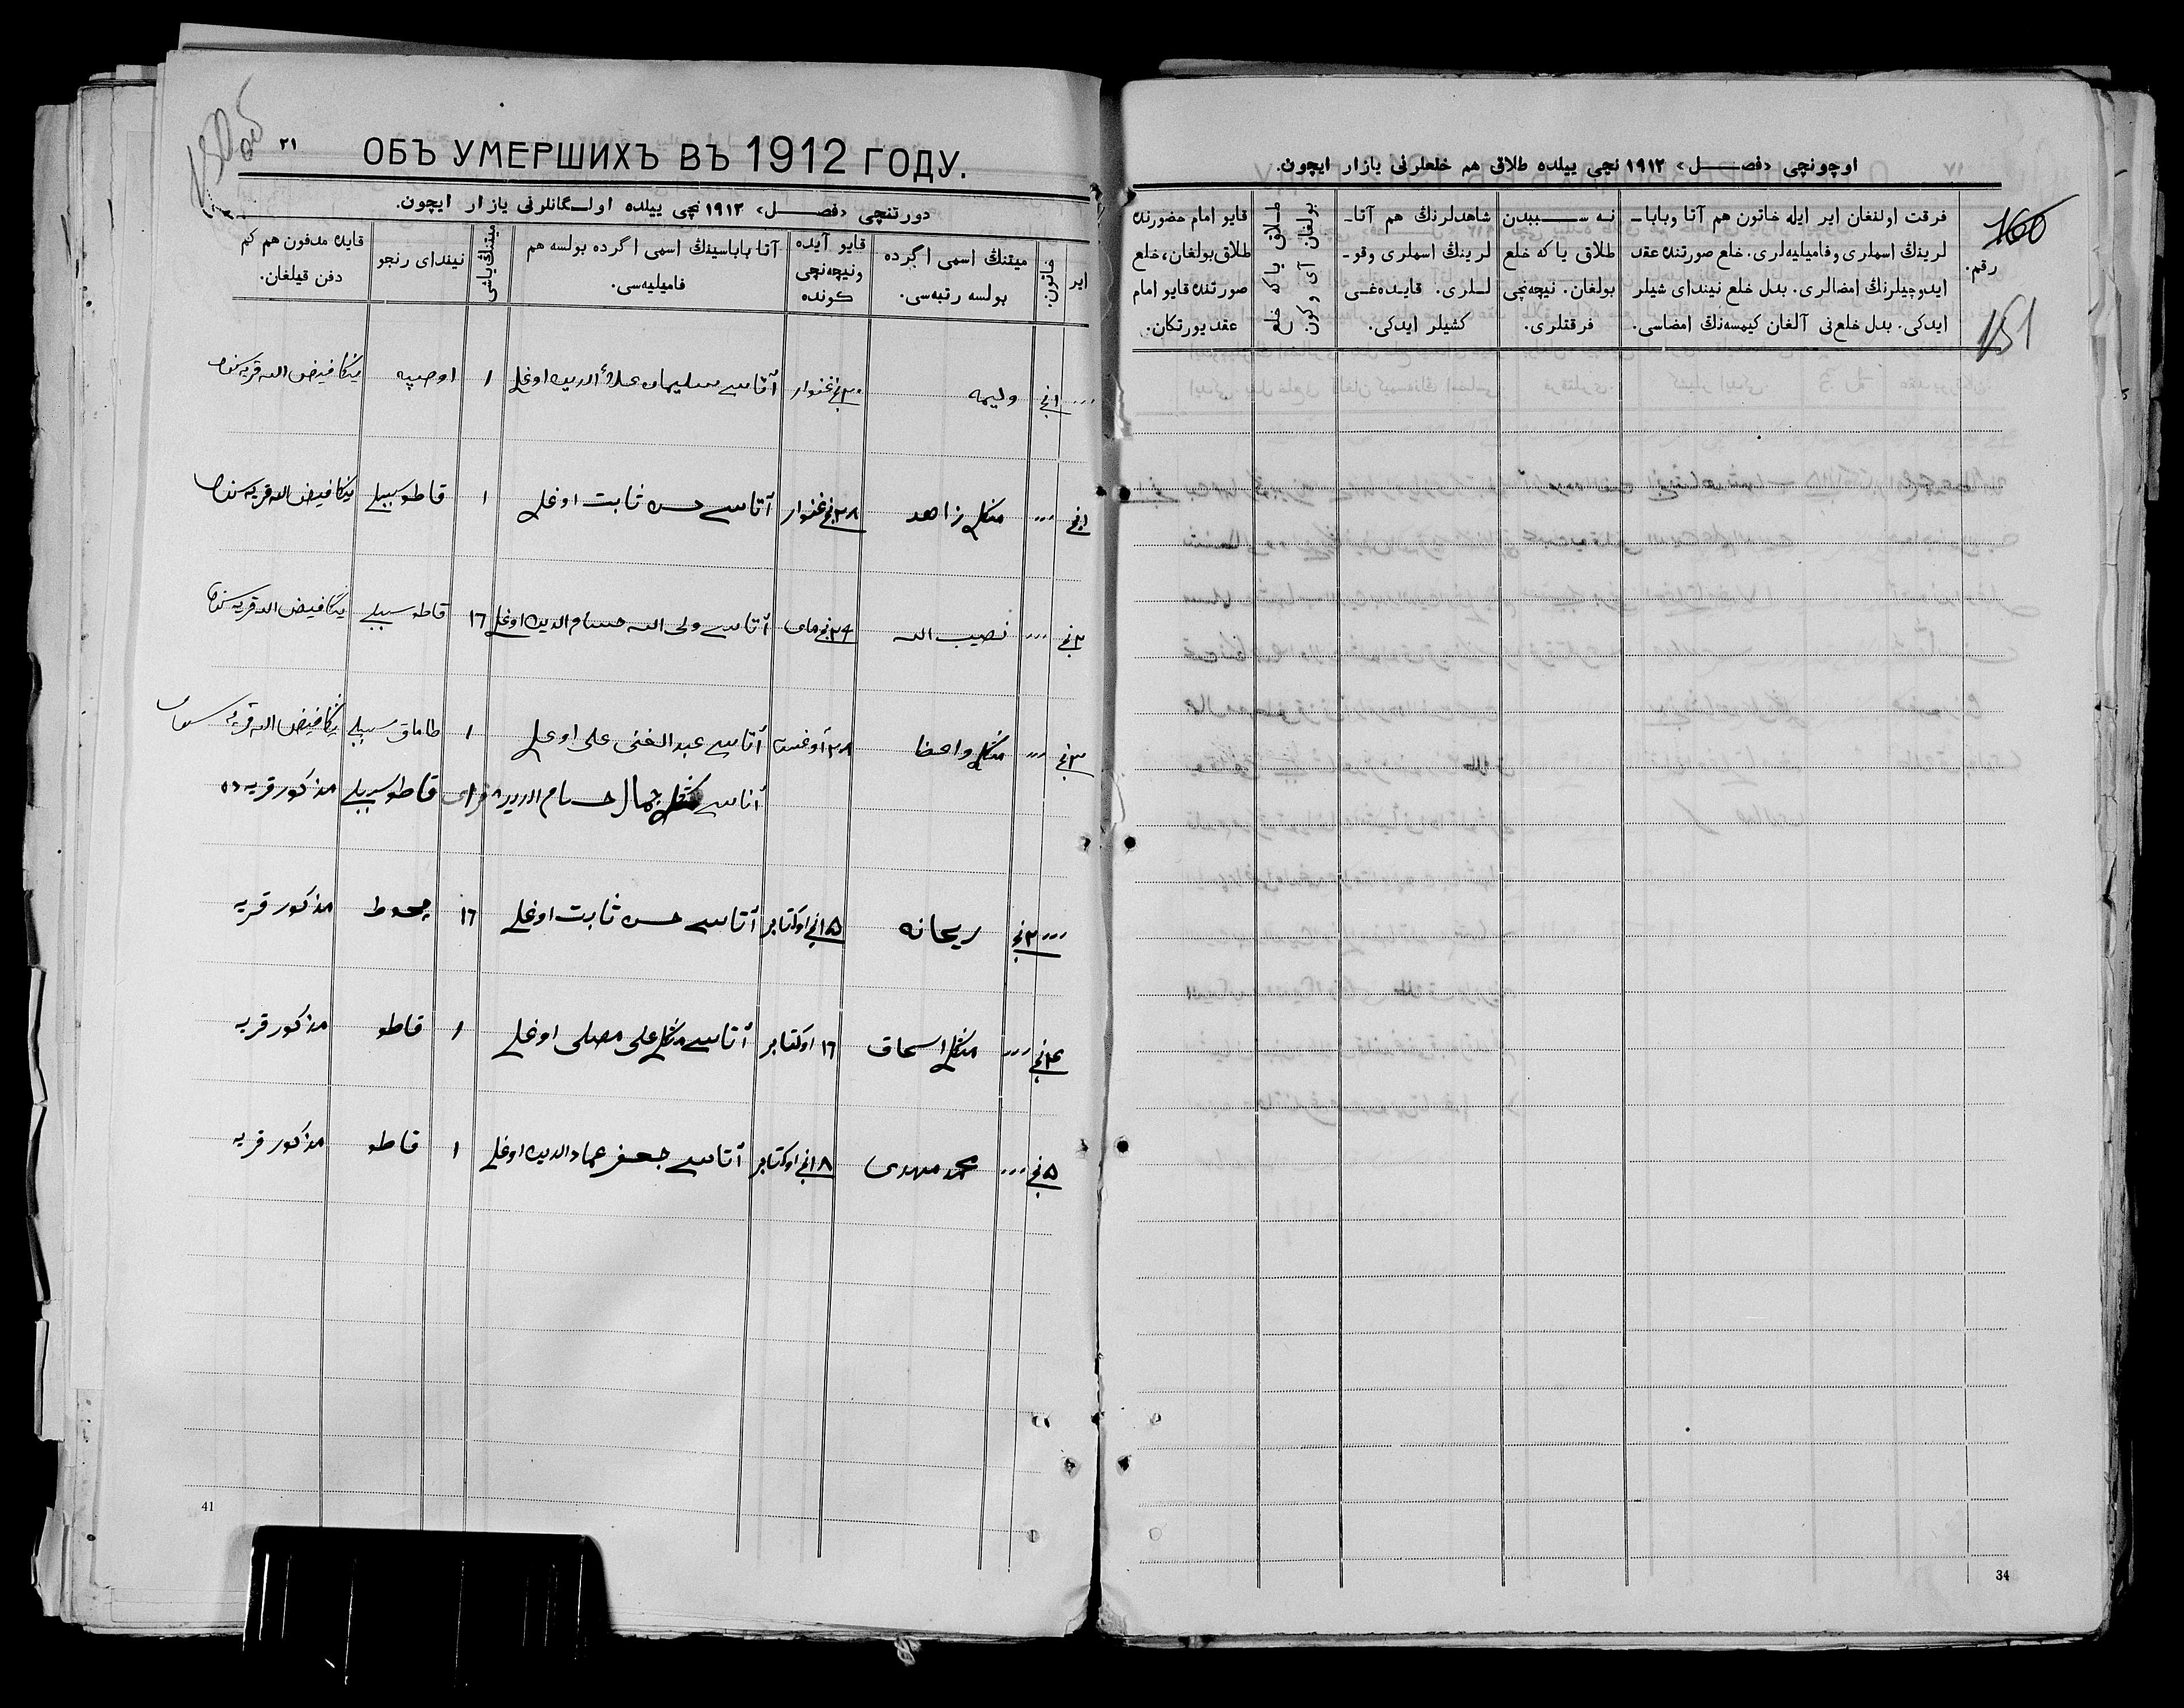 ٢١
ОБЪ УМЕРШИХЪ ВЪ 1912 ГОДУ.
دورتنچی «فصل» ١٩١٢ نچی ییلده اولـگانلرنی یازار ایچون.
ایر
خاتون
میتنڭ اسمی اگرده
بولسه رتبه‌سی.
قایو آیده
ونیچه‌نچی
كونده
آتا باباسینڭ اسمی اگرده بولسه هم
فامیلیه‌سی.
میتنڭ یاشی
نیندای رنجو
قایده مدفون هم كم
دفن قیلغان.
١نچی ولیمه آتاسی سلیمان علاء الدین اوغلی ١
١نچی منكلی زاهد ٢٨نچی غنوار آتاسی حسن ثابت اوغلی ١ قاطو سیبلی
٢نچی نصیب الله ٢٤نچی مای آتاسی ولی الله حسام الدین اوغلی ١٦ قاطو سیبلی
٣نچی ٢٨ آوغست آتاسی عبد الغنی علی اوغلی ١ طاماق سیبلی
قاطو سیبلی مذكور قریه ده
٢نچی ریحانه ١٥نچی اوكتابر آتاسی حسن ثابت اوغلی ١٦ مذكور قریه
٤نچی منكلی اسحاق ١٦ اوكتابر آتاسی منكلی علی مصلی اوغلی ١ قاطو مذكور قریه
٥نچی محمد مهدی ١٨نچی اوكتابر آتاسی جعفر عماد الدین اوغلی ١ قاطو مذكور قریه
41
اوچونچی «فصل» ١٩١٢ نچی ییلده طلاق هم خلعلرنی یازار ایچون.
160
151
رقم.
فرقت اولنغان ایر ایله خاتون هم آتا وبابا-
لرینڭ اسملری وفامیلیه‌لری. خلع صورتنده عقد
ایدوچیلرنڭ امضالری. بدل خلع نیندای شیلر
ایدكی. بدل خلع نی آلغان كیمسه‌نڭ امضاسی.
نه سـببدن
طلاق یا كه خلع
بولغان. نیچه‌نچی
فرقتلری.
شاهدلرنڭ هم آتا-
لرینڭ اسملری وقو-
لـلری. قایـده‌غـی
كشیلر ایدكی.
طلاق یا كه خلع
بولغان آی وكون
قایو امام حضورنده
طلاق بولغان، خلع
صورتنده قایو امام
عقد یورتكان.
34